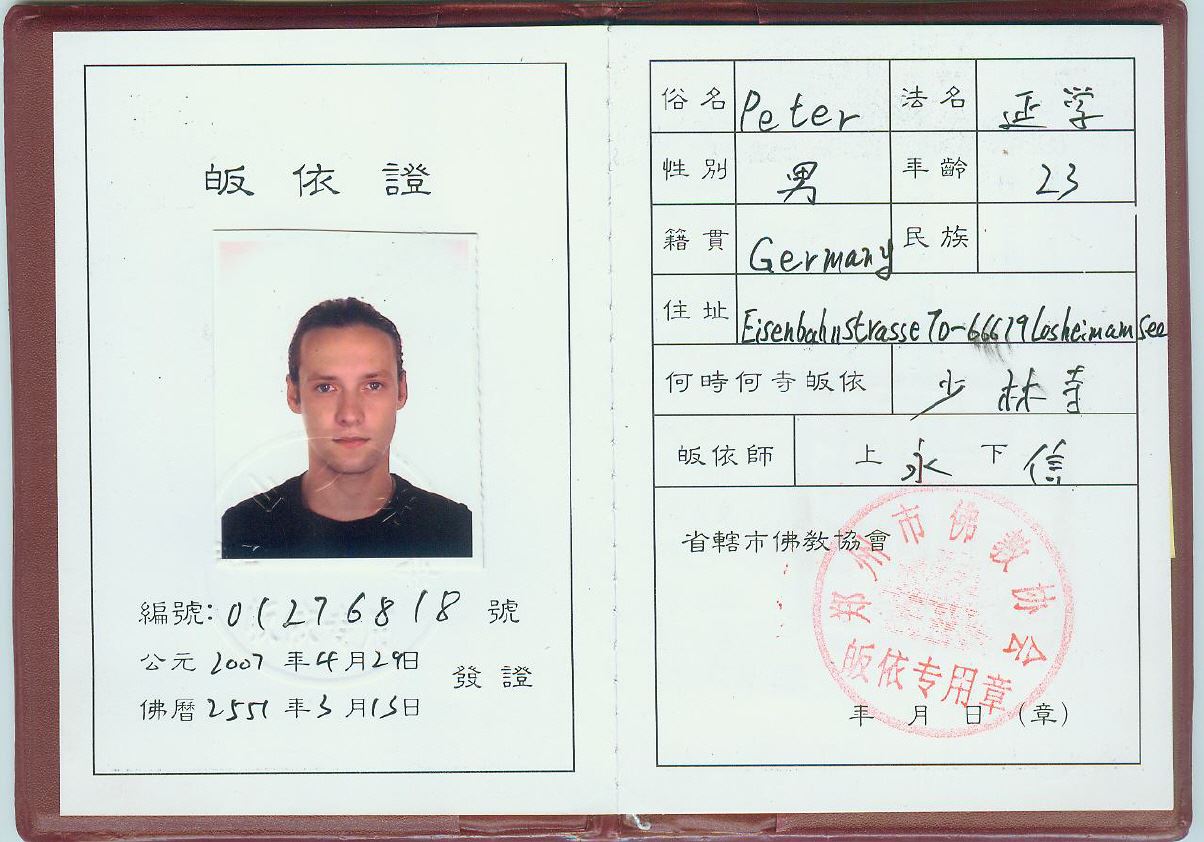 皈依證
編號: 01276818 號
公元 2007 年 4 月 29 日
發證
佛曆 2551 年 3 月 13 日
俗名 Peter 法名 延学
性別 男 年齡 23
籍貫 Germany 民族
住址 Eisenbahnstrasse 70-66679 Losheim am See
何時何寺皈依 少林寺
皈依師 上永下信
省轄市佛教協會
郑州市佛教协会
皈依专用章
年 月 日 (章)